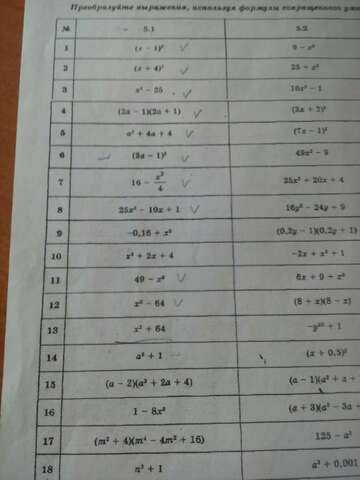 Преобразуйте выражения, используя формулы сокращенного
№ 5.1 5.2
1 (x − 1)² 9 − x²
2 (x + 4)² 25 − x²
3 x² − 25 16x² − 1
4 (2a − 1)(2a + 1) (3x + 2)²
5 a² + 4a + 4 (7x − 1)²
6 (3a − 1)² 49x² − 9
7 16 − x²/4 25x² + 20x + 4
8 25x² − 10x + 1 16y² − 24y + 9
9 −0,16 + x² (0,2y − 1)(0,2y + 1)
10 x² + 2x + 4 −2x + x² + 1
11 49 − x² 6x + 9 + x²
12 x² − 64 (8 + x)(8 − x)
13 x³ + 64 + 1
14 + 1 (x + 0,5)²
15 (a − 2)(a² + 2a + 4) (a − 1)(a² + a +
16 1 − 8x³ (a + 3)(a² − 3a +
17 (m² + 4)(m⁴ − 4m² + 16) 125 − a³
18 n³ + 1 a³ + 0,001